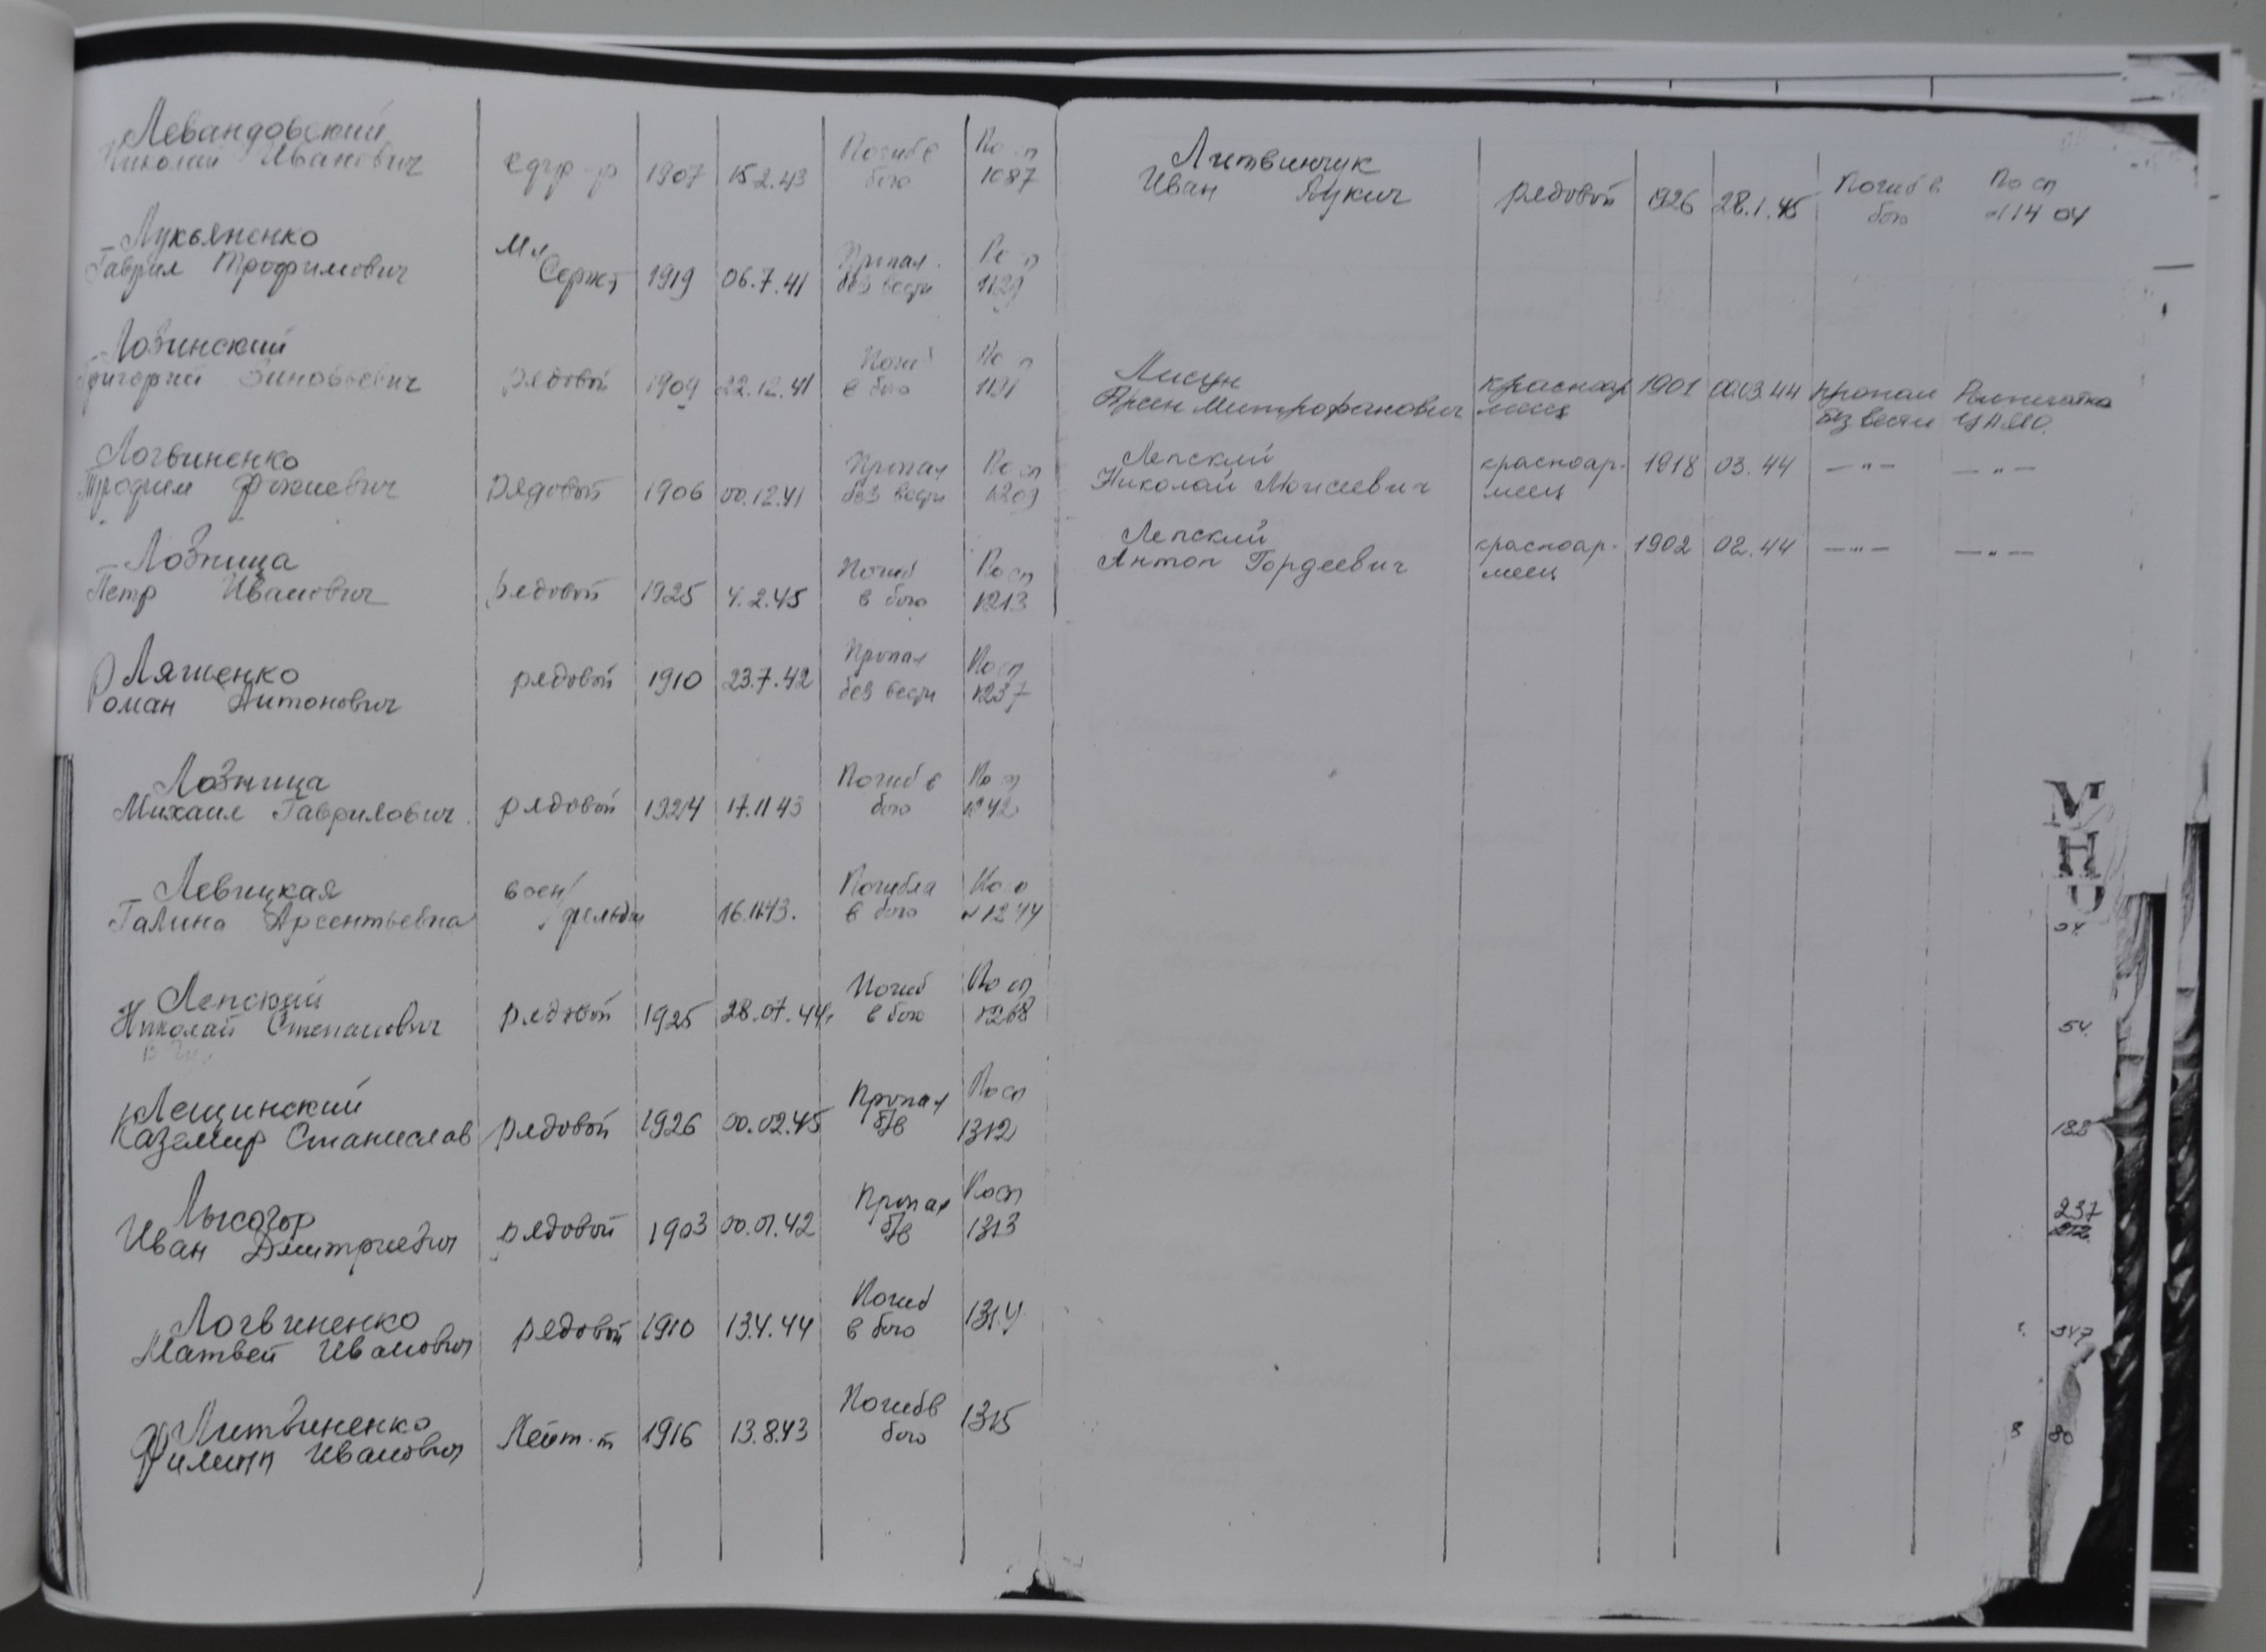 Левандовский
Николай Иванович 1907 15.2.43 Погиб в бою По сп 1087
Лукьяненко
Гаврил Трофимович Мл Сержт 1919 06.7.41 Пропал без вести 1129
Лозинский
Григорий Зиновьевич рядовой 1909 22.12.41 Погиб в бою 1191
Логвиненко
Трофим рядовой 1906 00.12.41 Пропал без вести По сп 1209
Лозница
Петр Иванович рядовой 1925 4.2.45 Погиб в бою По сп 1213
Ляшенко
Роман Антонович рядовой 1910 23.7.42 Пропал без вести По сп 1237
Лозница
Михаил Гаврилович рядовой 17.11 43 Погиб в бою По сп 1242
Левицкая
Галина Арсентьевна воен/фельдш 16.11.43. Погибла в бою 1244
Лепский
Николай Степанович рядовой 1925 28.07.44 Погиб в бою По сп 1268
Лещинский
Каземир Станислав рядовой 1926 00.02.45 Пропал б/в По сп 1312
Лысогор
Иван Дмитриевич рядовой 1903 00.01.42 Пропал б/в По сп 1313
Логвиненко
Матвей Иванович рядовой 1910 13.4.44 Погиб в бою 1314
Литвиненко
Филипп Иванович Лейт-т 1916 13.8.43 Погиб в бою 1315
Литвинчук
Иван Лукич рядовой 1926 28.1.45 Погиб в бою По сп 1404
Лисун
Арсен Митрофанович красноармеец 1901 00.03.44 пропал без вести ЦАМО.
Лепский
Николай Моисеевич красноар-меец 1918 03.44 —"— —"—
Лепский
Антон Гордеевич красноар-меец 1902 02.44 —"— —"—
М
Н
54.
188
237
347
80